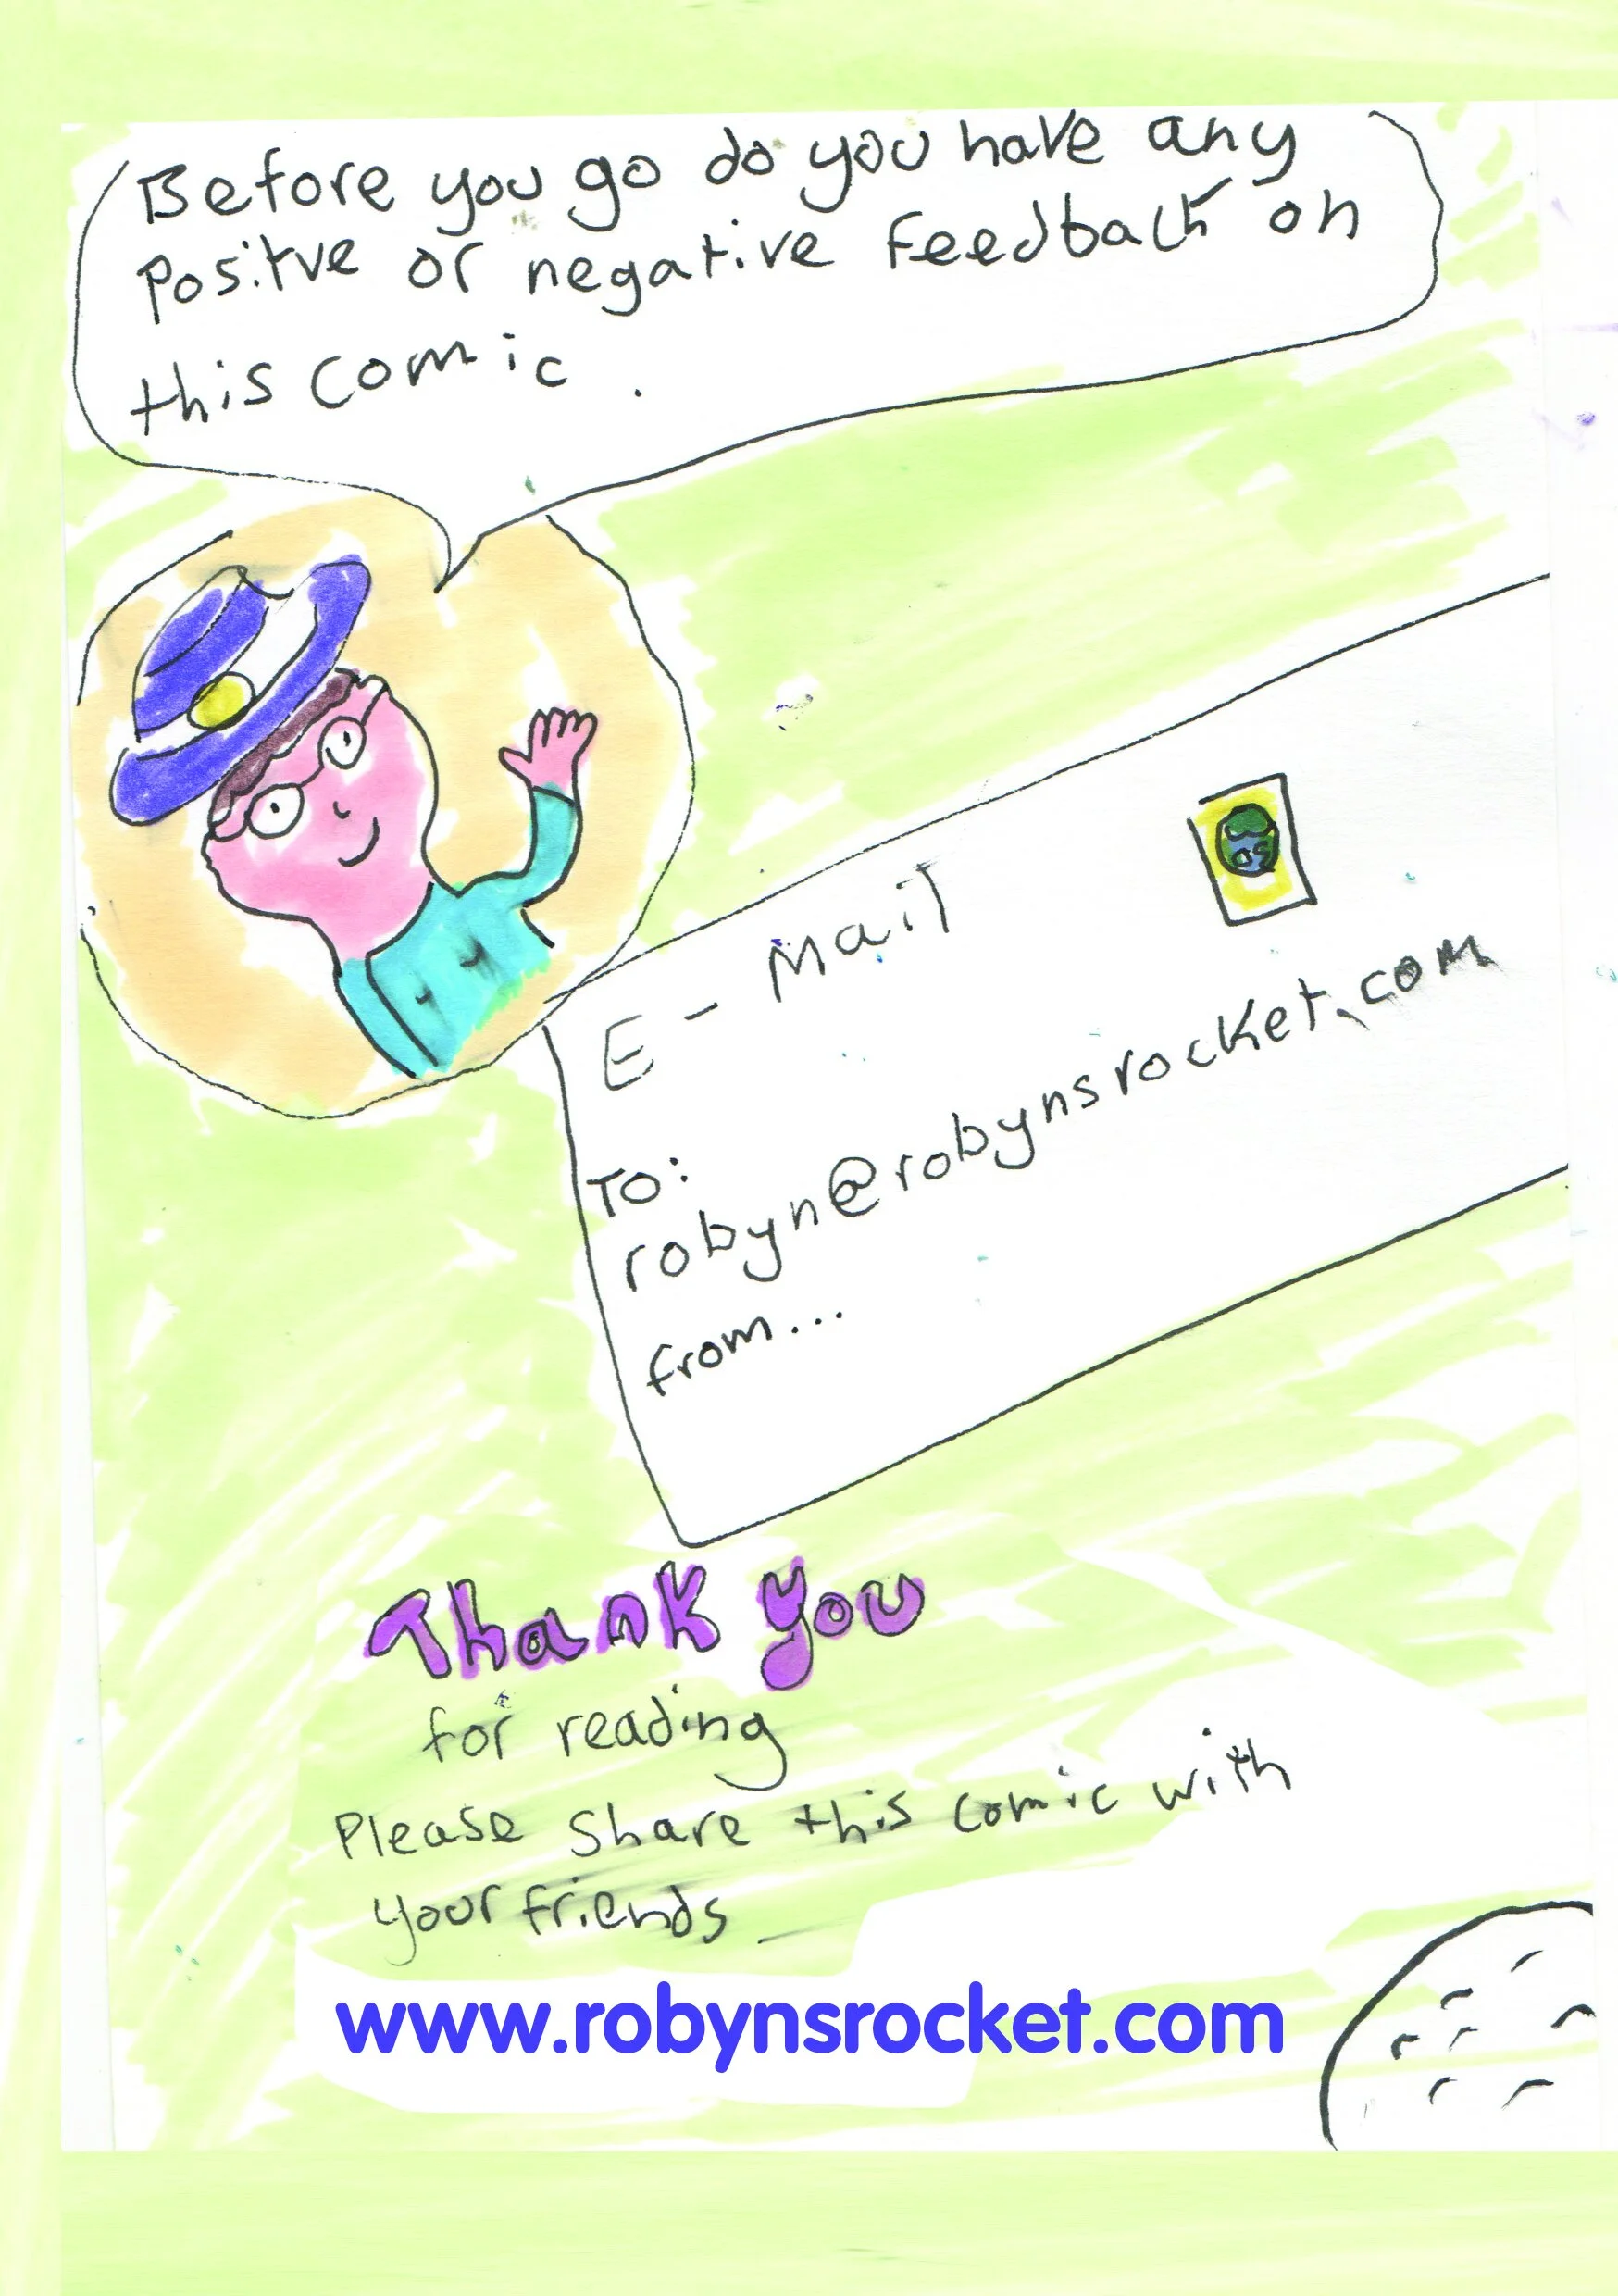 Before you go do you have any
Positve or negative Feedback on
this comic .
E - Mail
To:
robyn@robynsrocket.com
from...
Thank you
for reading
Please share this comic with
your friends
www.robynsrocket.com